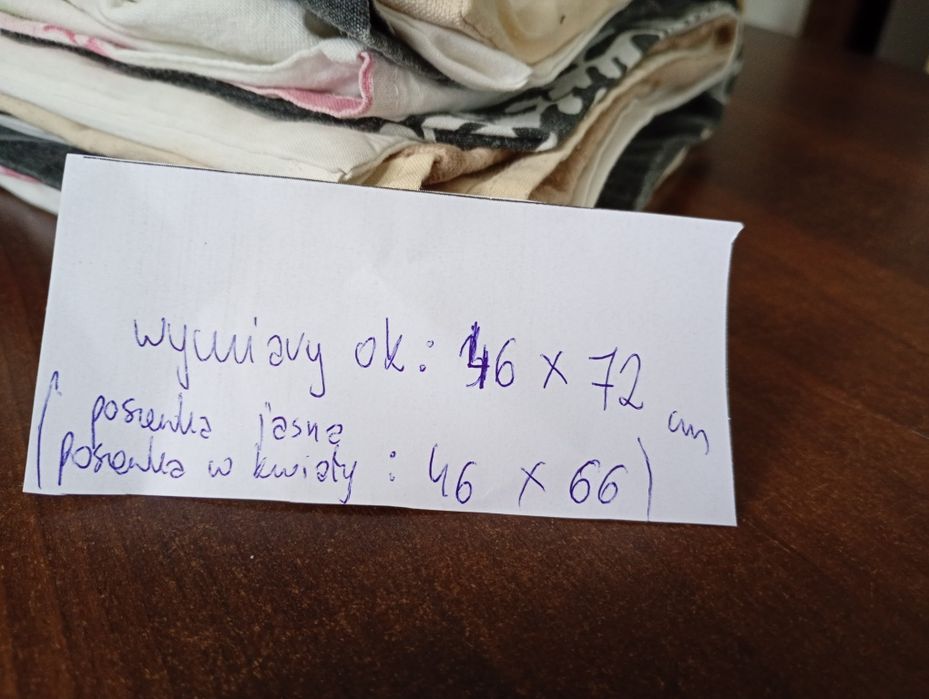 wymiary ok: 46 x 72 cm
(poszewka jasna
poszewka w kwiaty : 46 x 66)